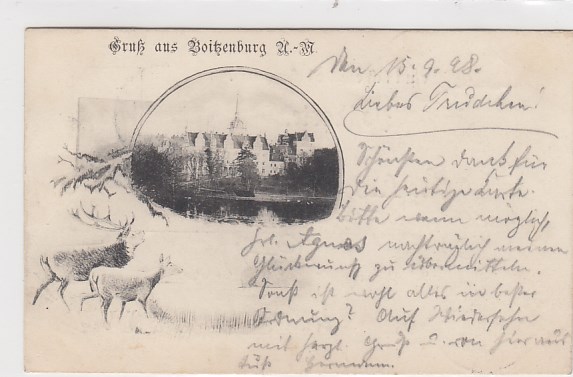 Gruß aus Boitzenburg U.-M
Den 15.9.98.
Liebes Trudchen!
Schönsten Dank für
die heutige Karte.
Bitte wenn möglich,
Frl. Agnes nachträglich meinen
Glückwunsch zu übermitteln.
Sonst ist wohl alles in bester
Ordnung? Auf Wiedersehn
mit herzl. Gruß von hier aus